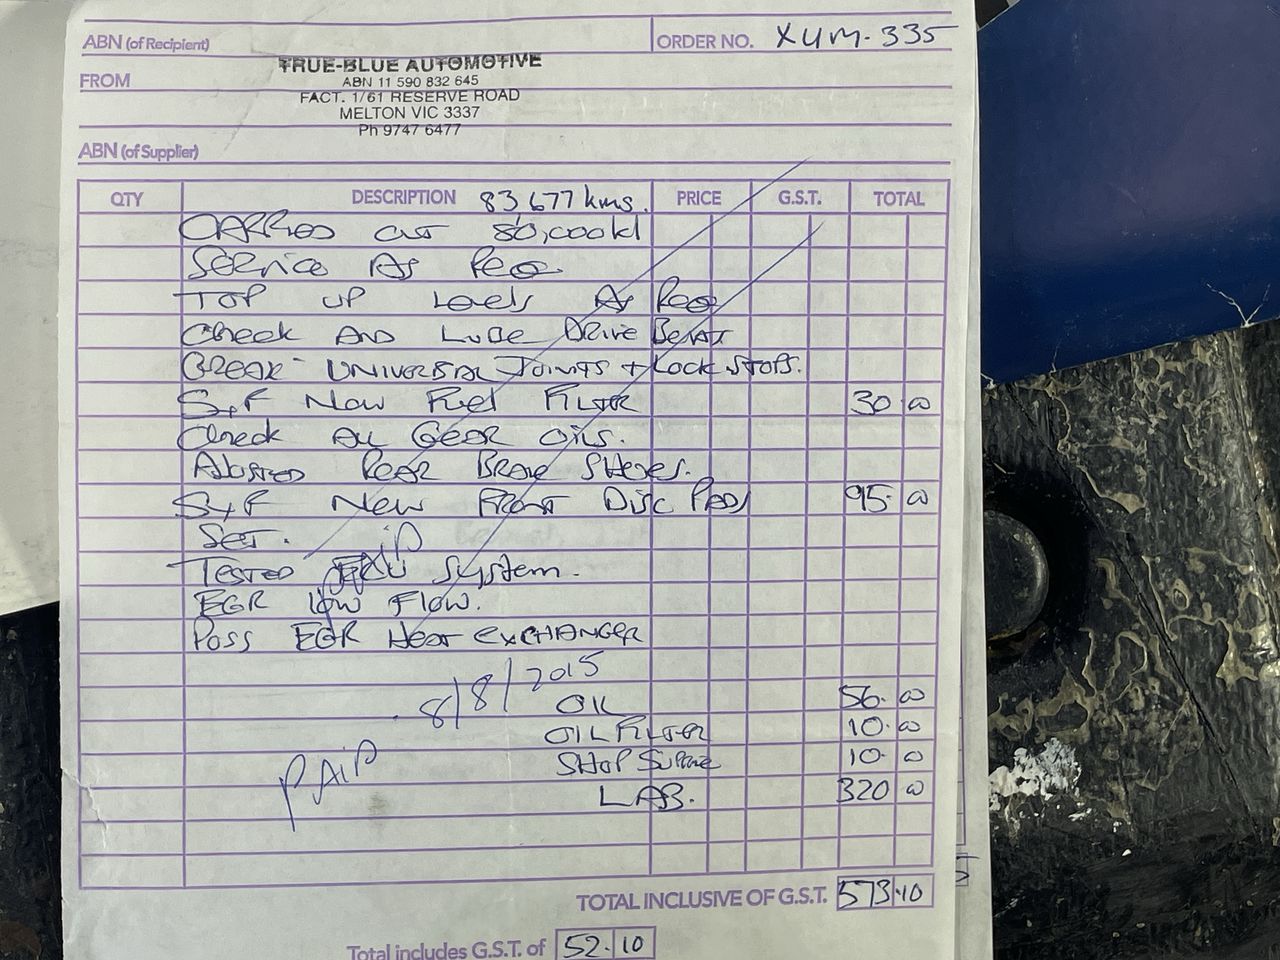 ABN (of Recipient)
ORDER NO. XUM-335
FROM
TRUE-BLUE AUTOMOTIVE
ABN 11 590 832 645
FACT. 1/61 RESERVE ROAD
MELTON VIC 3337
Ph 9747 6477
ABN (of Supplier)
QTY DESCRIPTION 83677kms. PRICE G.S.T. TOTAL
CARRIED OUT 80,000kl
SERVICE AS REQ
TOP UP Levels As REQ
CHeck AND LUBE DRIVE BELTS
GREASE UNIVERSAL JOINTS + LOCK STOPS.
S+F New Fuel FILTER 30.00
CHeck ALL GEAR OILS.
ADJUSTED REAR BRAKE SHOES.
S+F New FRONT DISC PADS 95.00
SET.
PAiD
TESTED System.
EGR low Flow.
POSS EGR Heat exCHANGER
8/8/2015
OIL 56.00
OIL FILTER 10.00
SHOP 10.00
PAiD
LAB. 320.00
TOTAL INCLUSIVE OF G.S.T. 573.10
Total includes G.S.T. of 52.10